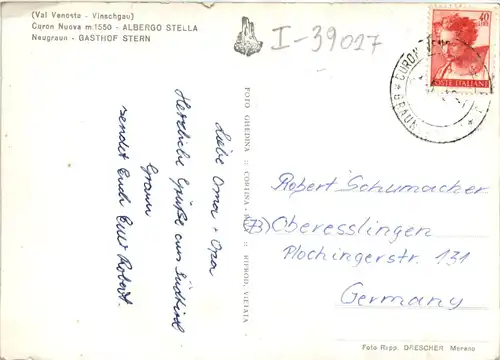 (Val Venosta - Vinschgau)
Curon Nuova m. 1550 - ALBERGO STELLA
Neugraun - GASTHOF STERN
I-39027
40
POSTE ITALIANE
CURON
GRAUN
Liebe Oma + Opa
Herzliche Grüße aus Südtirol
Graun
sendet Euch Euer Robert.
FOTO GHEDINA :: CORTINA :: RIPROD. VIETATA
Robert Schumacher
(73) Oberesslingen
Plochingerstr. 131
Germany
Foto Rapp. DRESCHER Merano